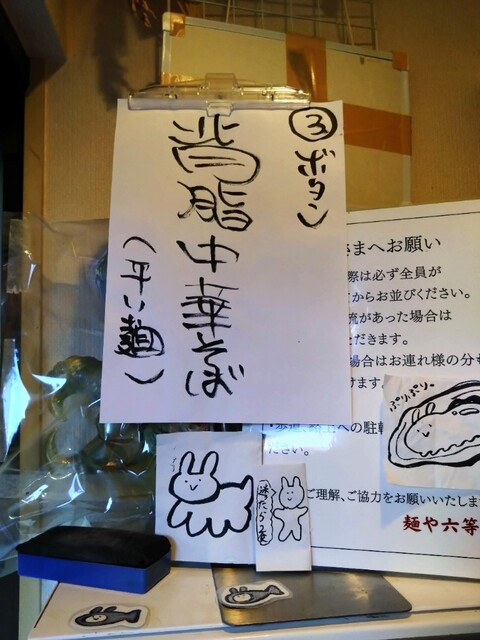 ③ボタン
背脂中華そば
(平い麺)
さまへお願い
際は必ず全員が
からお並びください。
流があった場合は
だきます。
場合はお連れ様の分も
けます。
への駐
ださい。
ご理解、ご協力をお願いいたしま
麺や六等
ぷりぷりー
迷たら3番